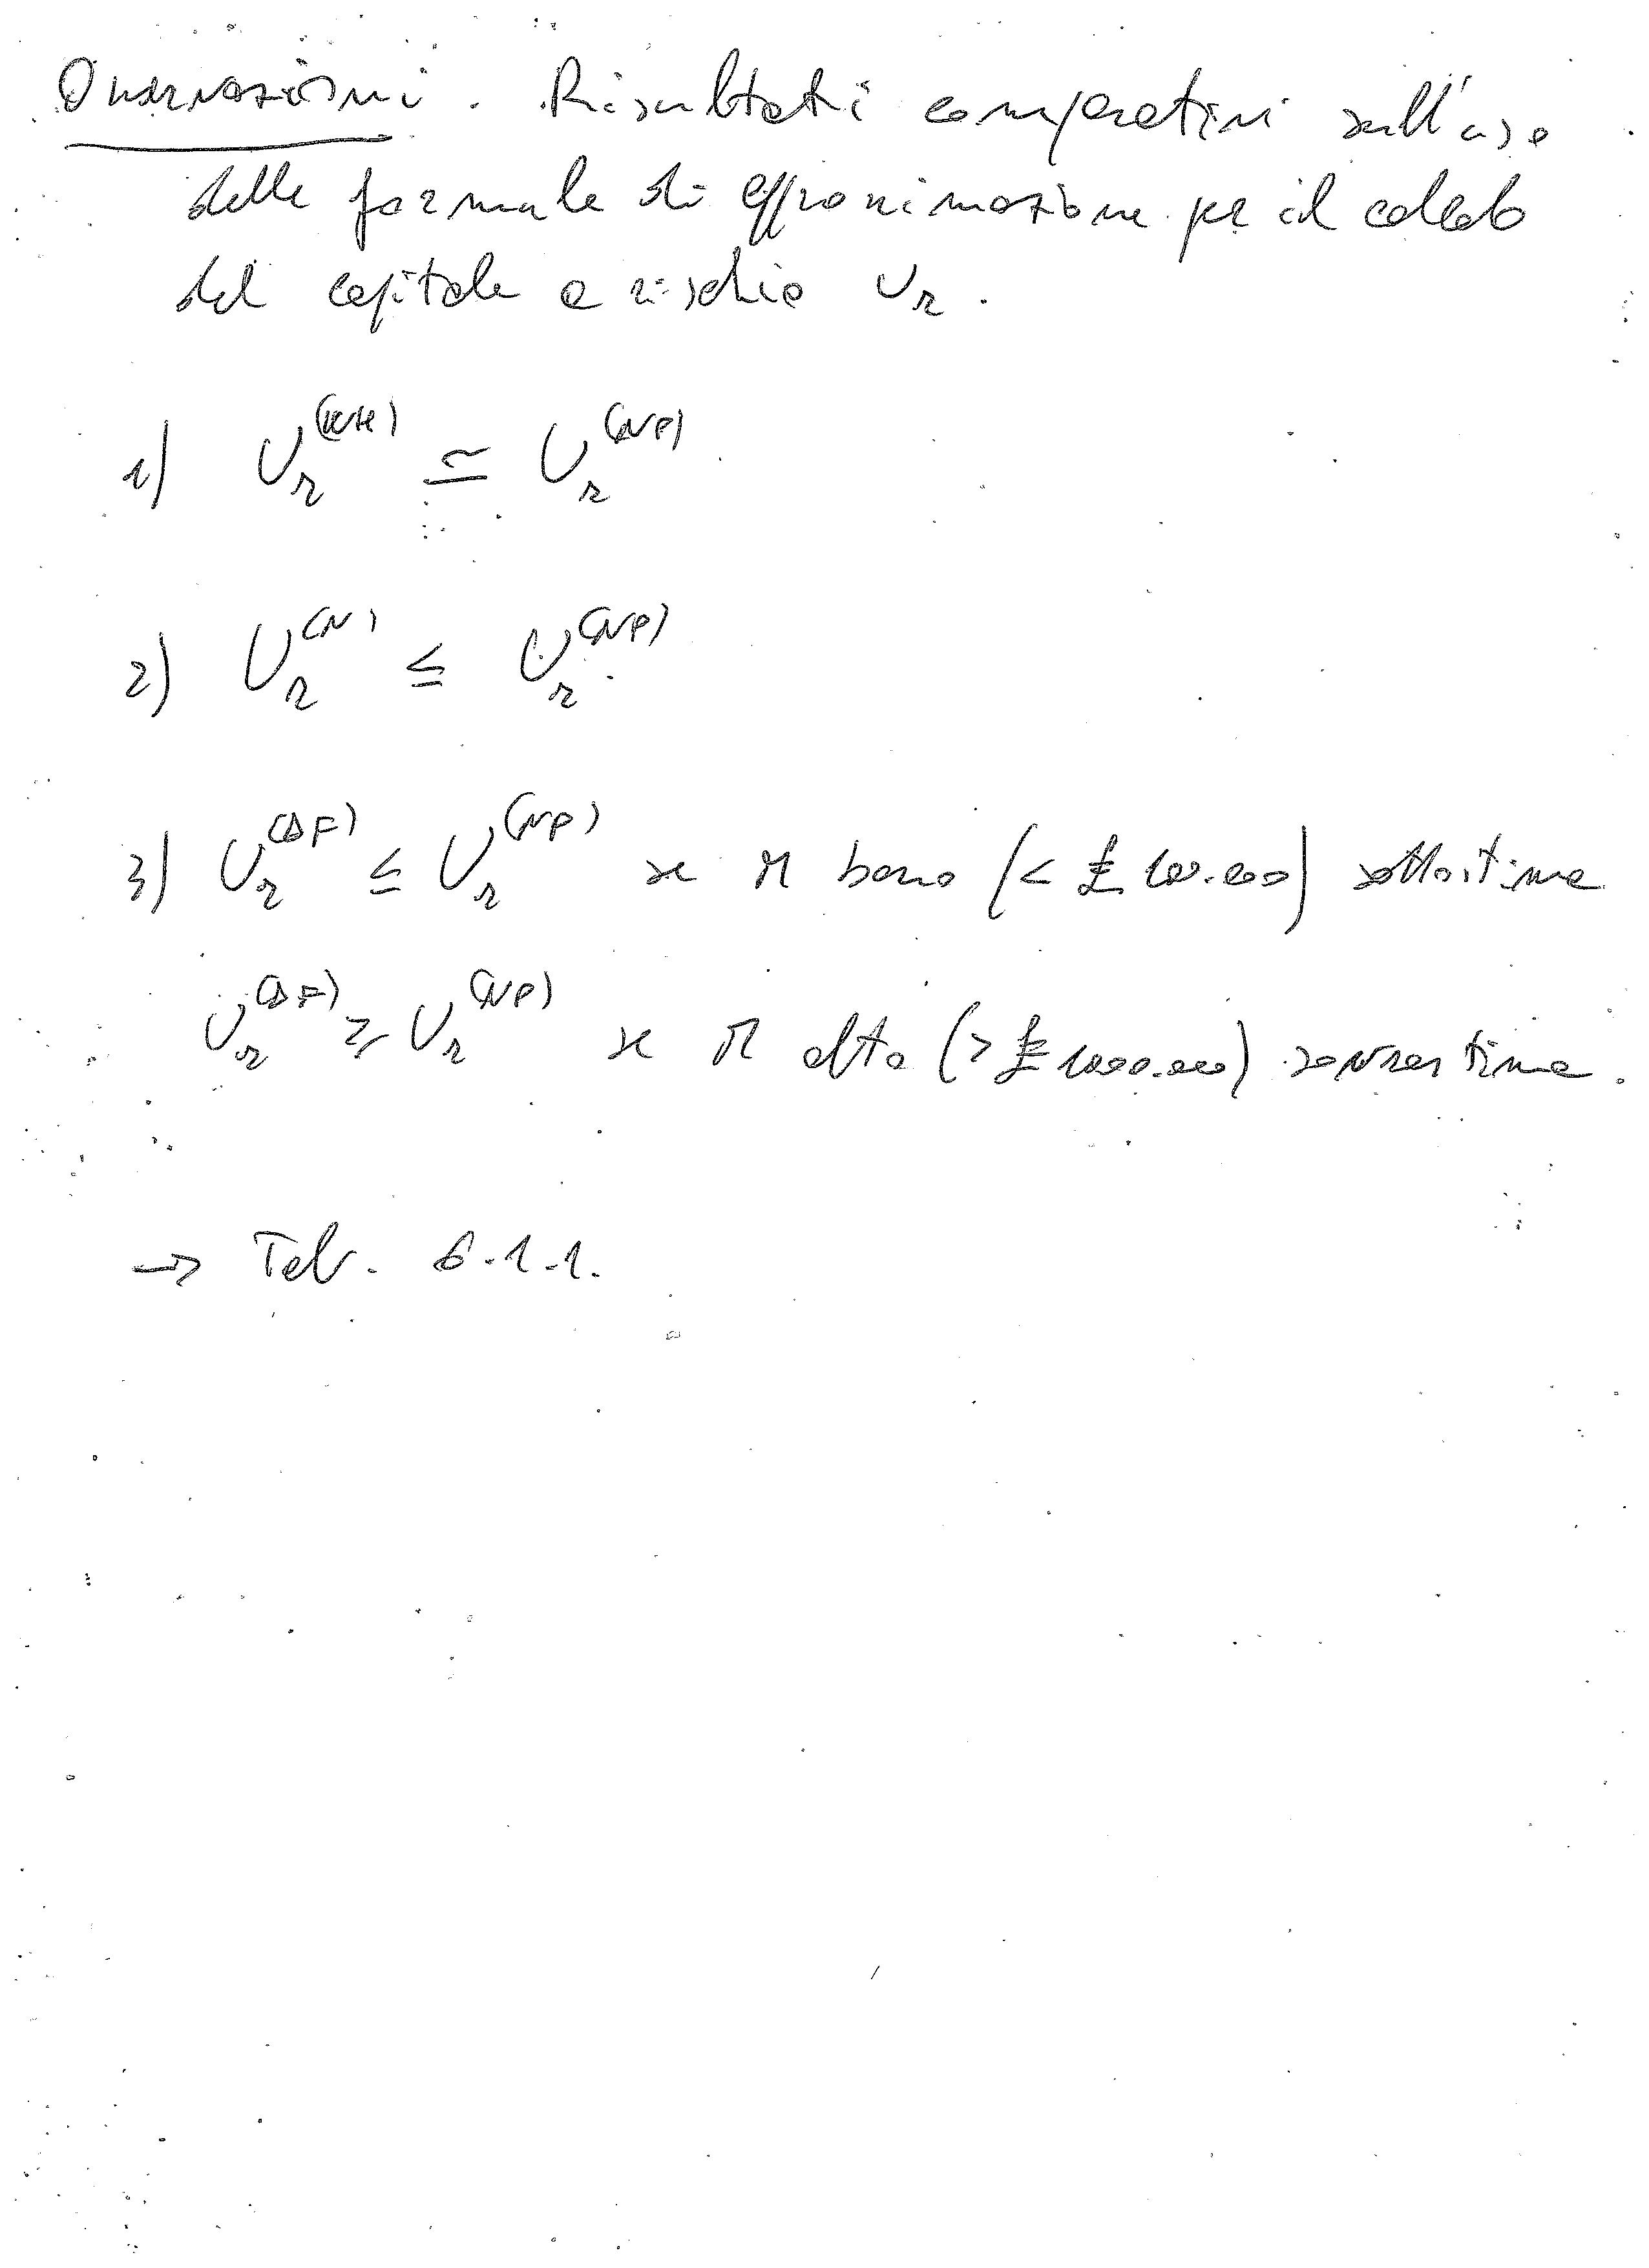 Osservazioni. Risultati comparativi sull'uso
delle formule di approssimazione per il calcolo
del capitale a rischio U_r.
1) U_r^(WH) ≃ U_r^(NP)
2) U_r^(N) ≤ U_r^(NP)
3) U_r^(DF) ≤ U_r^(NP) se M basso (< £ 100.000) sottostima
U_r^(DF) ≥ U_r^(NP) se M alto (> £ 1000.000) sovrastima.
→ Tab. 6.1.1.